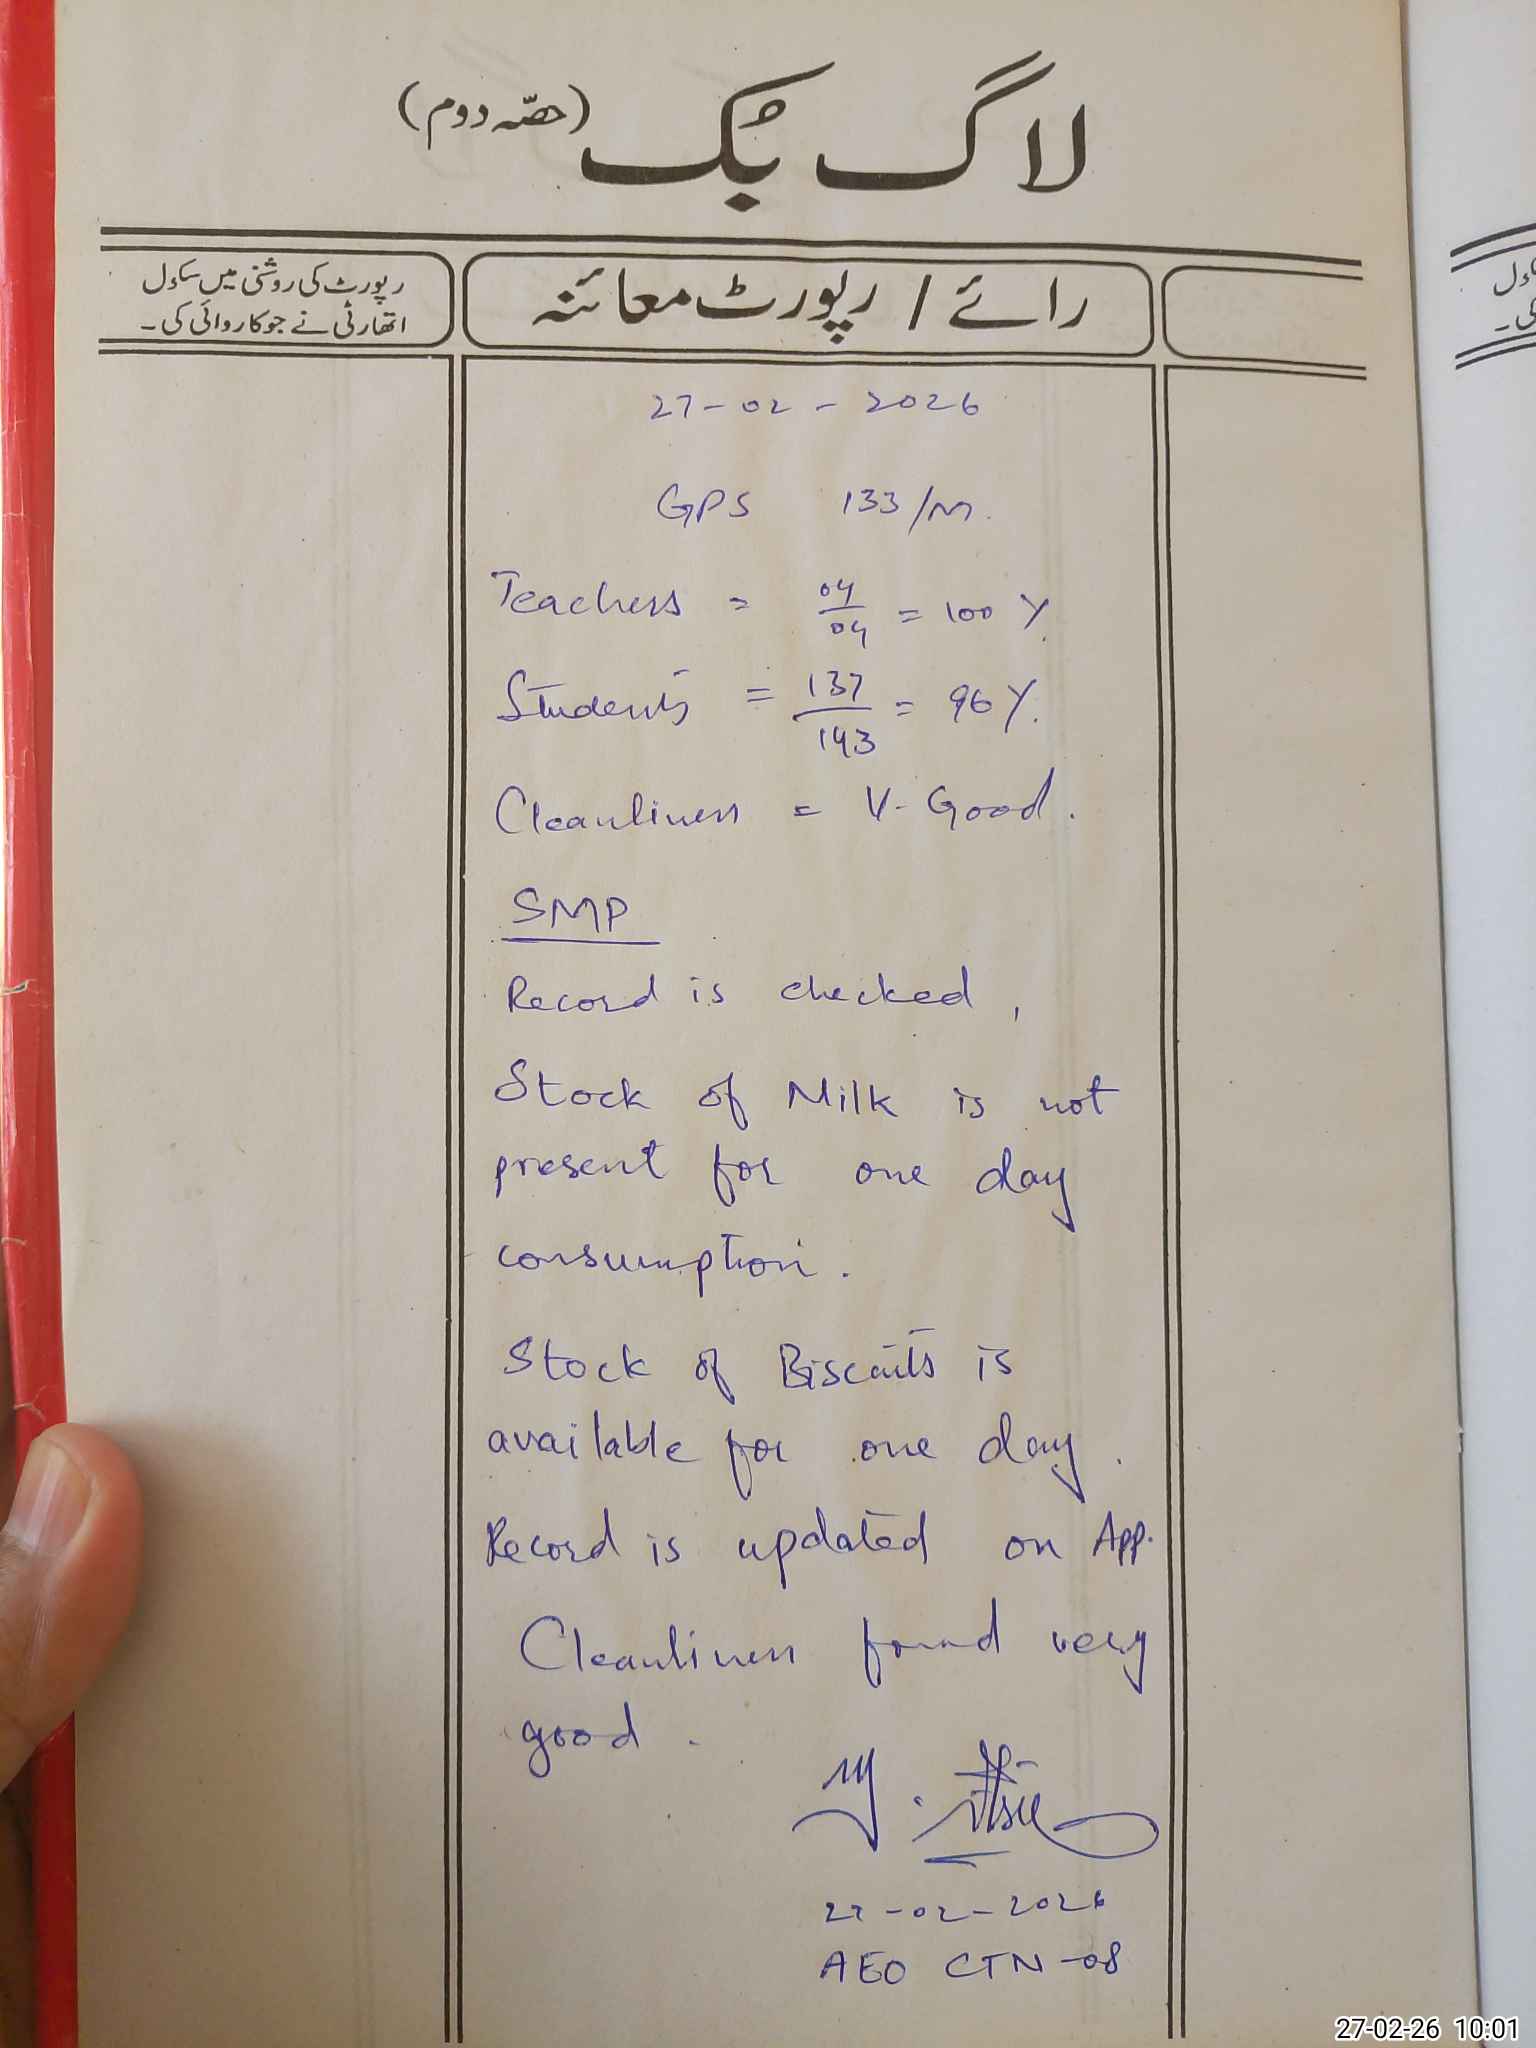 لاگ بُک (حصّہ دوم)
رائے / رپورٹ معائنہ
رپورٹ کی روشنی میں سکول
اتھارٹی نے جو کاروائی کی۔
27-02-2026
GPS 133/M.
Teachers = 04/04 = 100%
Students = 137/143 = 96%
Cleanliness = V-Good.
SMP
Record is checked,
Stock of Milk is not
present for one day
consumption.
Stock of Biscuits is
available for one day.
Record is updated on App.
Cleanliness found very
good.
27-02-2026
AEO CTN-08
27-02-26 10:01